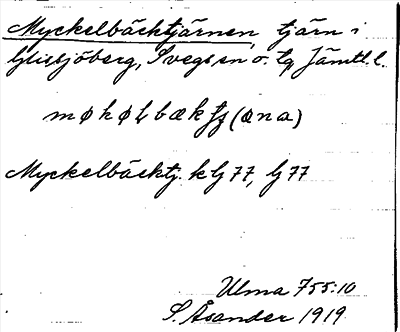 Myckelbäcktjärnen, tjärn i
Glissjöberg, Svegs sn o. tg Jämtl. l.
møkøɫbæktj(æna)
Myckelbäcktj. k G 77, G 77
Ulma 755:10
S. Åsander 1919.